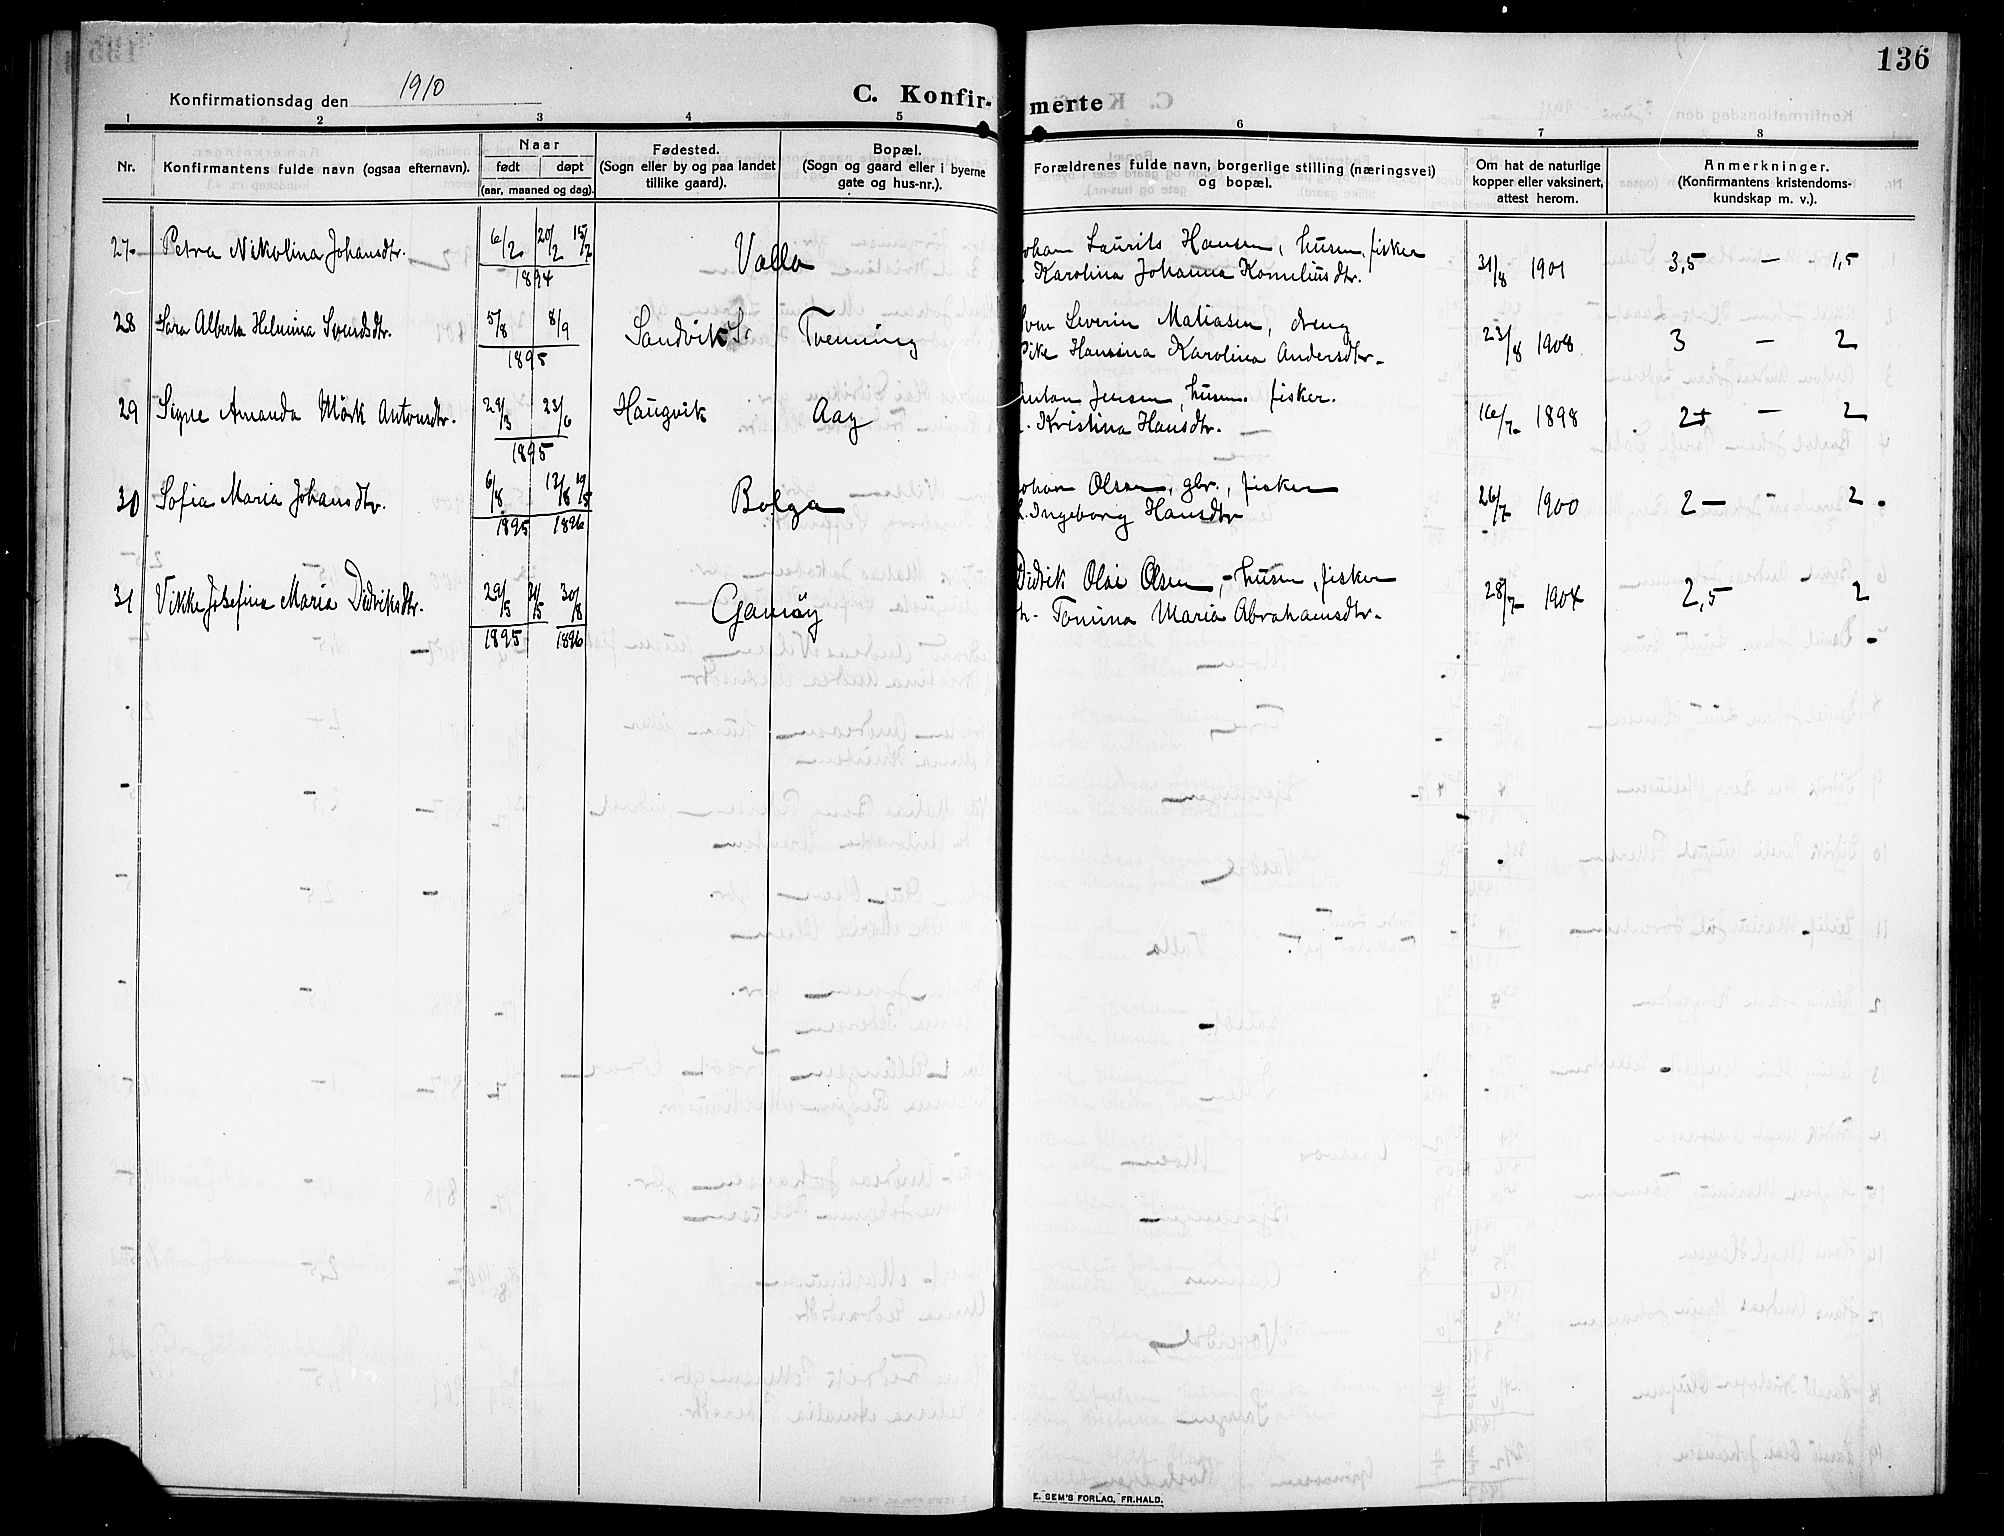 136
Konfirmationsdag den 1910
C. Konfir- merte
1 2 3 4 5 6 7 8
Nr. Konfirmantens fulde navn (ogsaa efternavn). Naar født døpt (aar, maaned og dag). Fødested. (Sogn eller by og paa landet tillike gaard). Bopæl. (Sogn og gaard eller i byerne gate og hus-nr.). Forældrenes fulde navn, borgerlige stilling (næringsvei) og bopæl. Om hat de naturlige kopper eller vaksinert, attest herom. Anmerkninger. (Konfirmantens kristendoms- kundskap m. v.).
27- Petra Nikolina Johansdtr. 6/2 20/2 15/7 1894 Valla ohan Laurits Hansen, husm. fisker 31/8 1901 3,5 — 1,5
Karolina Johanna Korneliusdtr.
28 Sara Alberta Helmina Svendsdtr. 5/8 8/9 1895 Sandvik Tvenning Sven Severin Matiasen, dreng 23/8 1908 3 — 2
Pike Hansina Karolina Andersdtr-
29 Signe Amanda Mörk Antonsdtr. 29/3 23/6 1895 Haugvik Aag Anton Jensen, husm. fisker. 16/7- 1898 2+ — 2
Kristina Hansdtr.
30 Sofia Maria Johansdtr. 6/8 1895 13/8 1896 Bolga ohan Olsen, gbr., fisker 26/7- 1900 2 — 2
Ingeborg Hansdtr
31 Vikke Josefina Maria Didviksdtr. 29/5 1895 30/8 1896 Gamöy Didvik Olai Olsen, - husm, fisker 28/7- 1904 2,5 - 2
h- Tomina Maria Abrahamsdtr.
E. SEM'S FORLAG, FR.HALD.